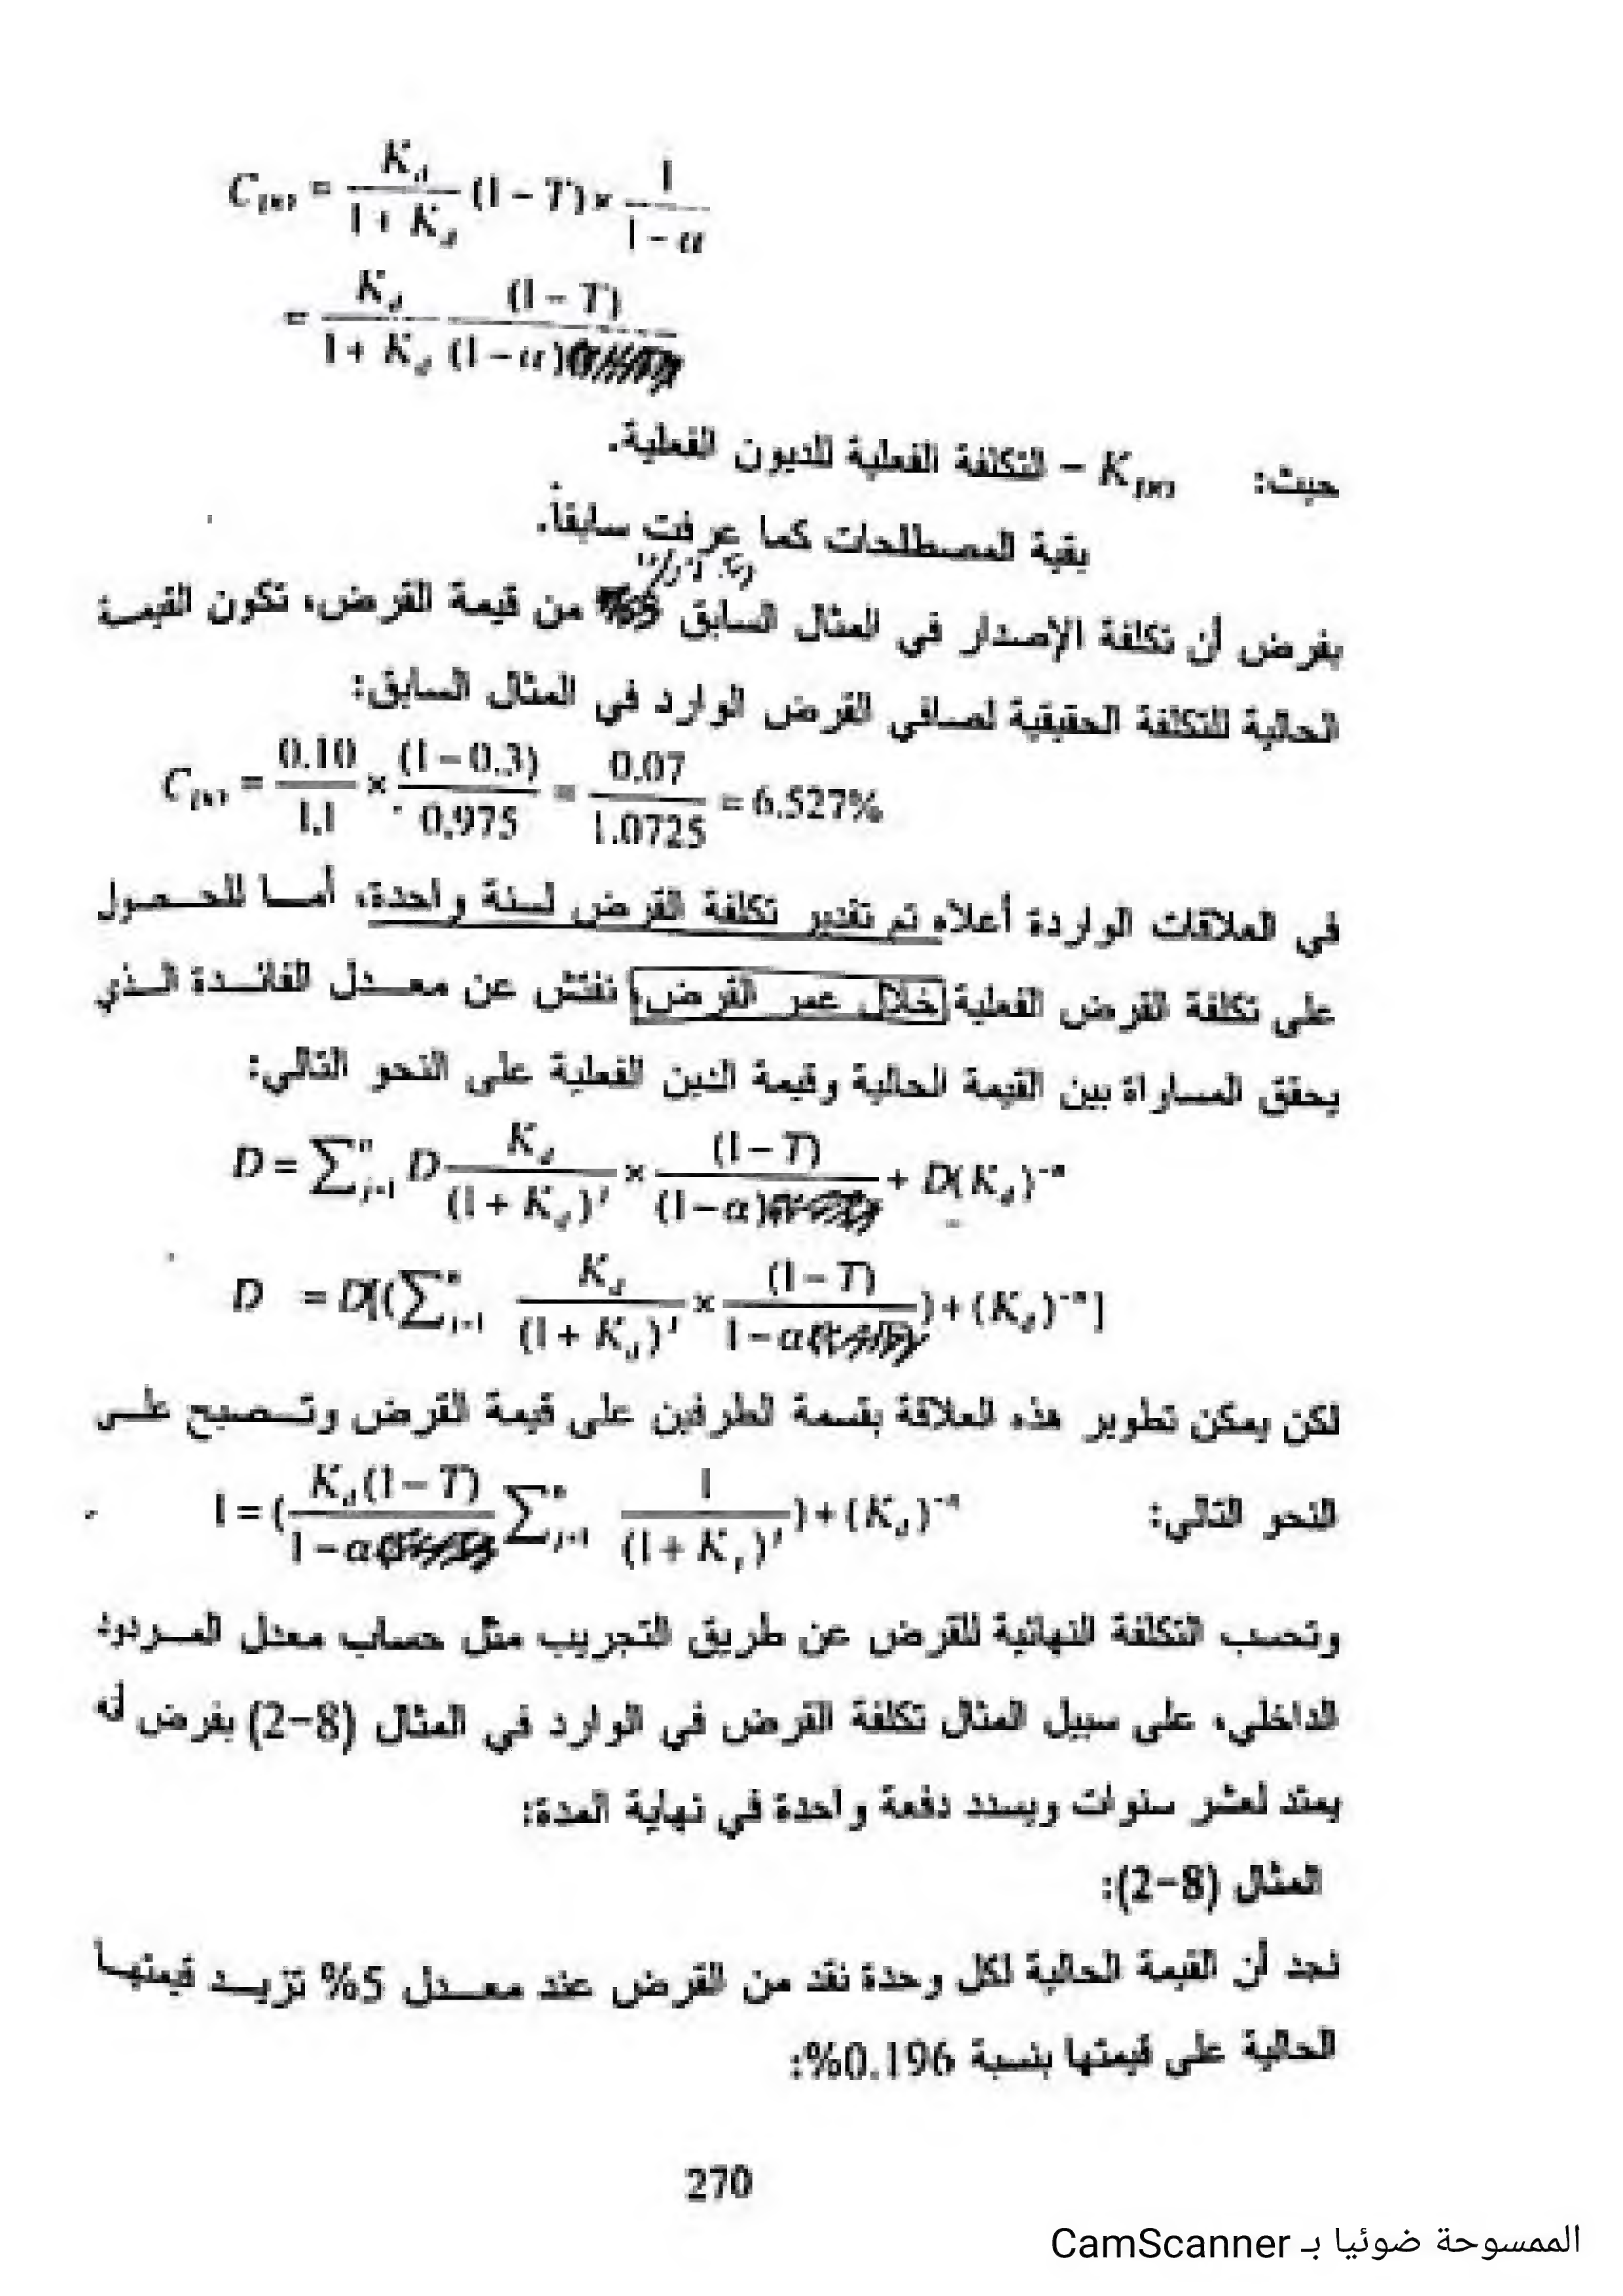 C_{(N)} = \frac{K_d}{1 + K_d} (1 - T) \times \frac{1}{1 - α}
= \frac{K_d}{1 + K_d} \frac{(1 - T)}{(1 - α)}
حيث: K – التكلفة الفعلية للديون الفعلية.
بقية المصطلحات كما عرفت سابقاً.
بفرض أن تكلفة الإصدار في المثال السابق من قيمة القرض، تكون القيمة
الحالية للتكلفة الحقيقية لصافي القرض الوارد في المثال السابق:
C_{(N)} = \frac{0.10}{1.1} × \frac{(1 - 0.3)}{0.975} = \frac{0.07}{1.0725} = 6.527%
في العلاقات الواردة أعلاه تم تقدير تكلفة القرض لسنة واحدة، أما للحصول
على تكلفة القرض الفعلية خلال عمر القرض، نفتش عن معدل الفائدة الذي
يحقق المساواة بين القيمة الحالية وقيمة الدين الفعلية على النحو التالي:
D = \sum_{j=1}^{n} D \frac{K_d}{(1 + K_d)^j} × \frac{(1 - T)}{(1 - α)} + D(K_d)^{-n}
D = D[(\sum_{i=1}^{n} \frac{K_d}{(1 + K_d)^j} × \frac{(1 - T)}{1 - α}) + (K_d)^{-n}]
لكن يمكن تطوير هذه العلاقة بقسمة الطرفين على قيمة القرض وتصبح على
النحو التالي: 1 = (\frac{K_d(1 - T)}{1 - α} \sum_{j=1}^{n} \frac{1}{(1 + K)^j}) + (K_d)^{-n}
وتحسب التكلفة النهائية للقرض عن طريق التجريب مثل حساب معدل المردود
الداخلي، على سبيل المثال تكلفة القرض في الوارد في المثال (8-2) بفرض أنه
يمتد لعشر سنوات ويسدد دفعة واحدة في نهاية المدة:
المثال (8-2):
نجد أن القيمة الحالية لكل وحدة نقد من القرض عند معدل 5% تزيد قيمتها
الحالية على قيمتها بنسبة 0.196%:
270
الممسوحة ضوئيا بـ CamScanner